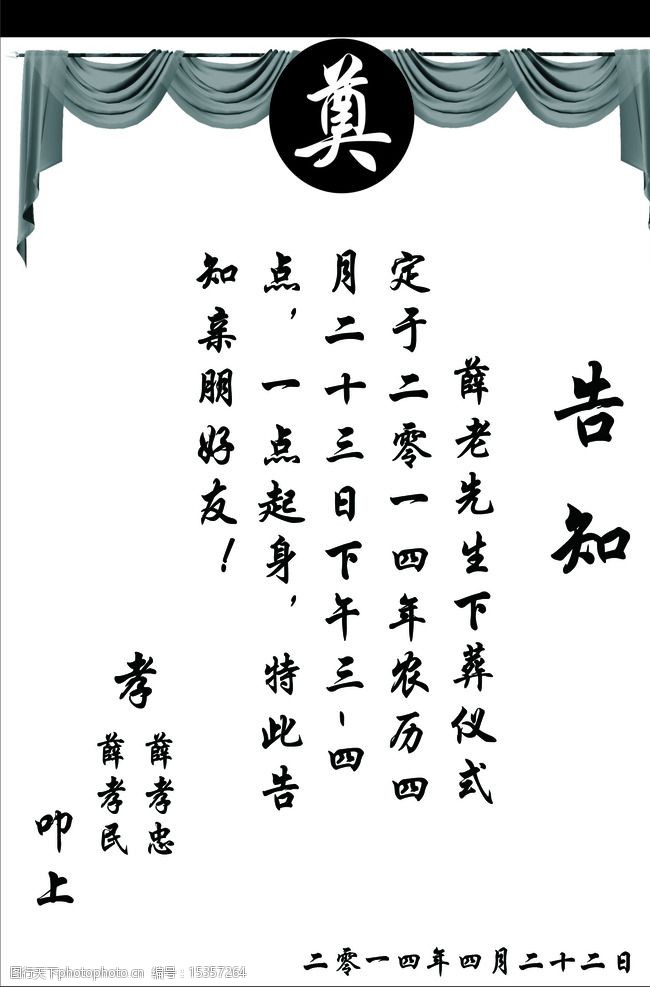 奠
告知
薛老先生下葬仪式
定于二零一四年农历四
月二十三日下午三-四
点，一点起身，特此告
知亲朋好友！
孝
薛孝忠
薛孝民
叩上
二零一四年四月二十二日
图行天下photophoto.cn 编号：15357264